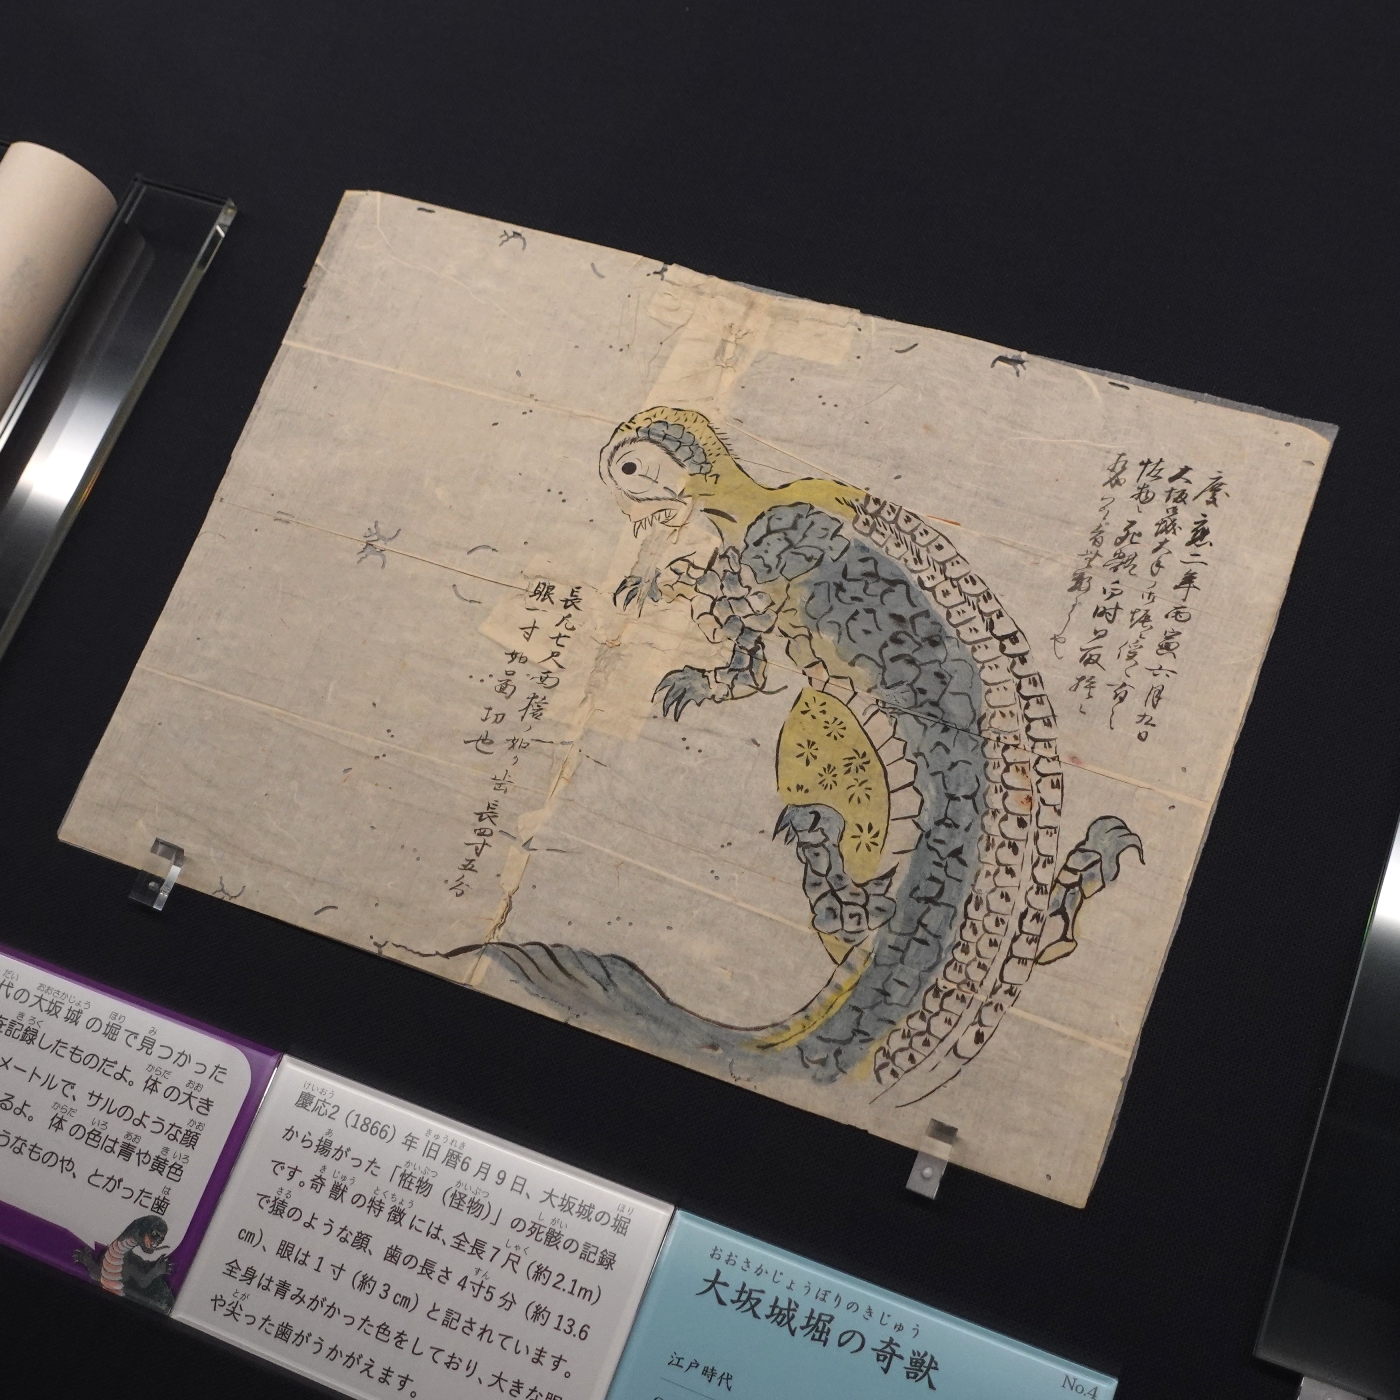 慶應二年丙寅六月九日
大坂
長凡七尺面猿ノ如ク歯長四寸五分
眼一寸如図切也
代の大坂城の堀で見つかった
を記録したものだよ。体の大き
メートルで、サルのような顔
るよ。体の色は青や黄色
うなものや、とがった歯
慶応2（1866）年旧暦6月9日、大坂城の堀
から揚がった「恠物（怪物）」の死骸の記録
です。奇獣の特徴には、全長7尺（約2.1m）
で猿のような顔、歯の長さ4寸5分（約13.6
cm）、眼は1寸（約3cm）と記されています。
全身は青みがかった色をしており、大きな眼
や尖った歯がうかがえます。
おおさかじょうぼりのきじゅう
大坂城堀の奇獣
江戸時代
No.4